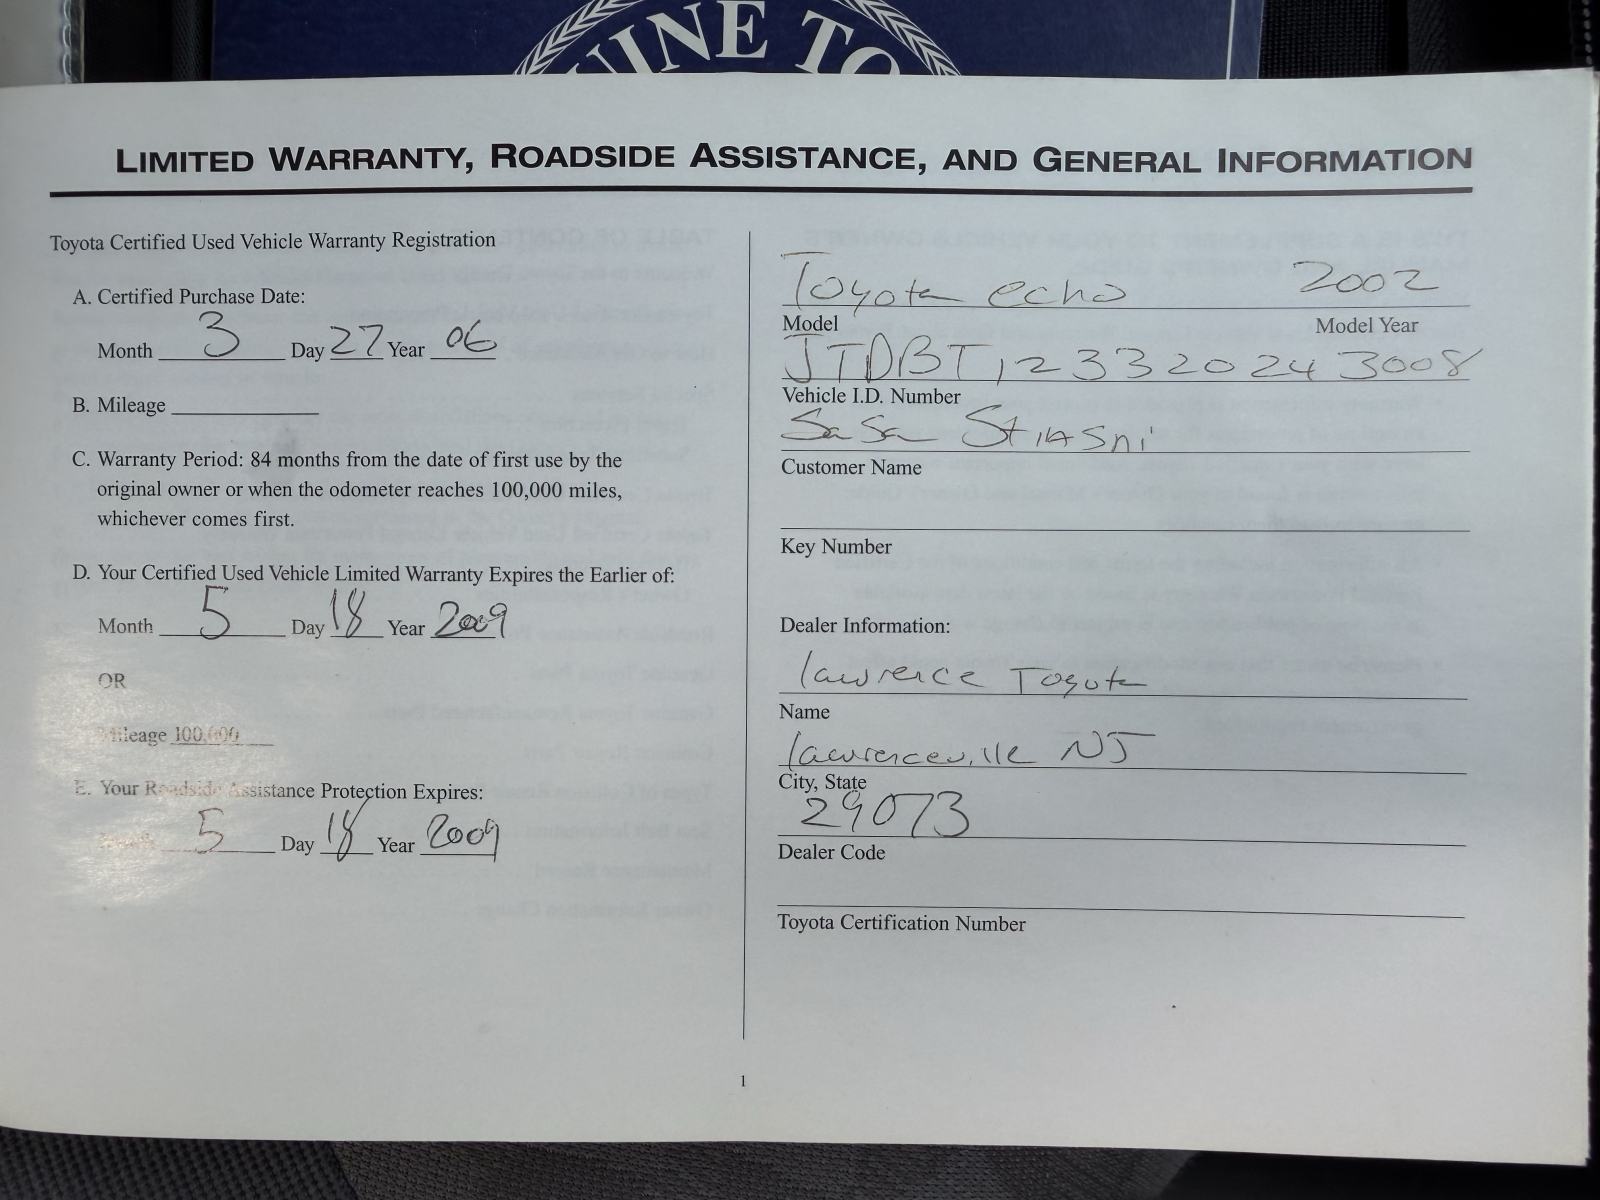 UINE TO
LIMITED WARRANTY, ROADSIDE ASSISTANCE, AND GENERAL INFORMATION
Toyota Certified Used Vehicle Warranty Registration
A. Certified Purchase Date:
Month 3 Day 27 Year 06
B. Mileage
C. Warranty Period: 84 months from the date of first use by the
original owner or when the odometer reaches 100,000 miles,
whichever comes first.
D. Your Certified Used Vehicle Limited Warranty Expires the Earlier of:
Month 5 Day 18 Year 2009
OR
Mileage 100,000
E. Your Roadside Assistance Protection Expires:
Month 5 Day 18 Year 2009
Toyota echo 2002
Model Model Year
JTDBT123320243008
Vehicle I.D. Number
SaSa
Customer Name
Key Number
Dealer Information:
lawrence Toyota
Name
lawrenceville NJ
City, State
29073
Dealer Code
Toyota Certification Number
1